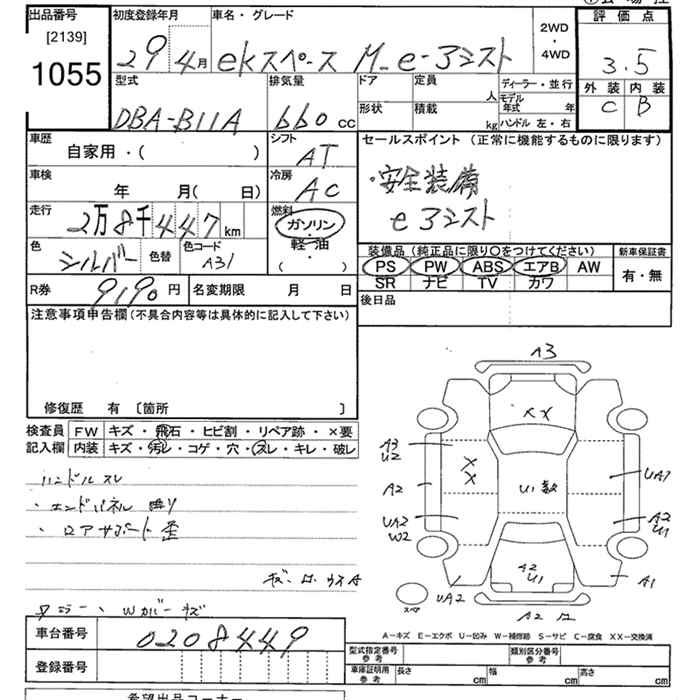 出品番号
[2139]
1055
初度登録年月
29年4月
車名・グレード
ekスペース M_e-アシスト
2WD
・
4WD
評価点
3.5
外装 内装
C B
型式
DBA-B11A
排気量
660 cc
ドア
形状
定員
人
積載
kg
ディーラー・並行
モデル年式 年
ハンドル 左・右
車歴
自家用・( )
シフト
AT
セールスポイント (正常に機能するものに限ります)
・安全装備
eアシスト
車検
年 月( 日)
冷房
AC
走行
2万8千447km
燃料
ガソリン
軽・油
( )
色
シルバー
色替
色コード
A31
装備品 (純正品に限り〇をつけてください)
PS PW ABS エアB AW
SR ナビ TV カワ
新車保証書
有・無
R券
9190円
名変期限 月 日
後日品
注意事項申告欄 (不具合内容等は具体的に記入して下さい)
修復歴 有 〔箇所 〕
検査員
記入欄
FW キズ・飛石・ヒビ割・リペア跡・×要
内装 キズ・汚レ・コゲ・穴・スレ・キレ・破レ
ハンドルスレ
・エンドパネル曲り
・ロアサポート歪
ミラー、Wカバーキズ
A3
XX
A3
U2
X
X
A2
U1数
UA1
UA2
W2
A2
U1
A2
U1
UA2
A1
スペア
A2
A-キズ E-エクボ U-凹み W-補修跡 S-サビ C-腐食 XX-交換済
車台番号
0208449
登録番号
型式指定番号
参考
類別区分番号
参考
車庫証明用
参考
長さ cm
幅 cm
高さ cm
希望出品コーナー